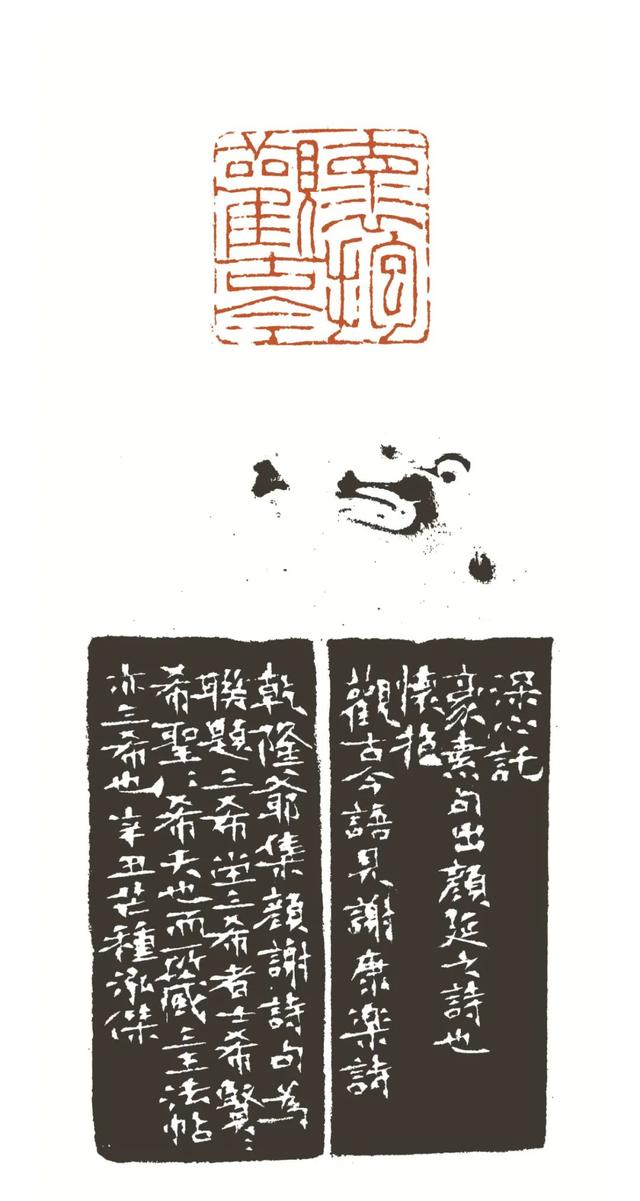 懷抱
觀古今
深心託
豪素句出顏延之詩也
懷抱
觀古今語見謝康樂詩
乾隆爺集顏謝詩句為
聯題三希堂三希者士希賢〻
希聖〻希天也而所藏三王法帖
亦三希也辛丑芒種泓傑